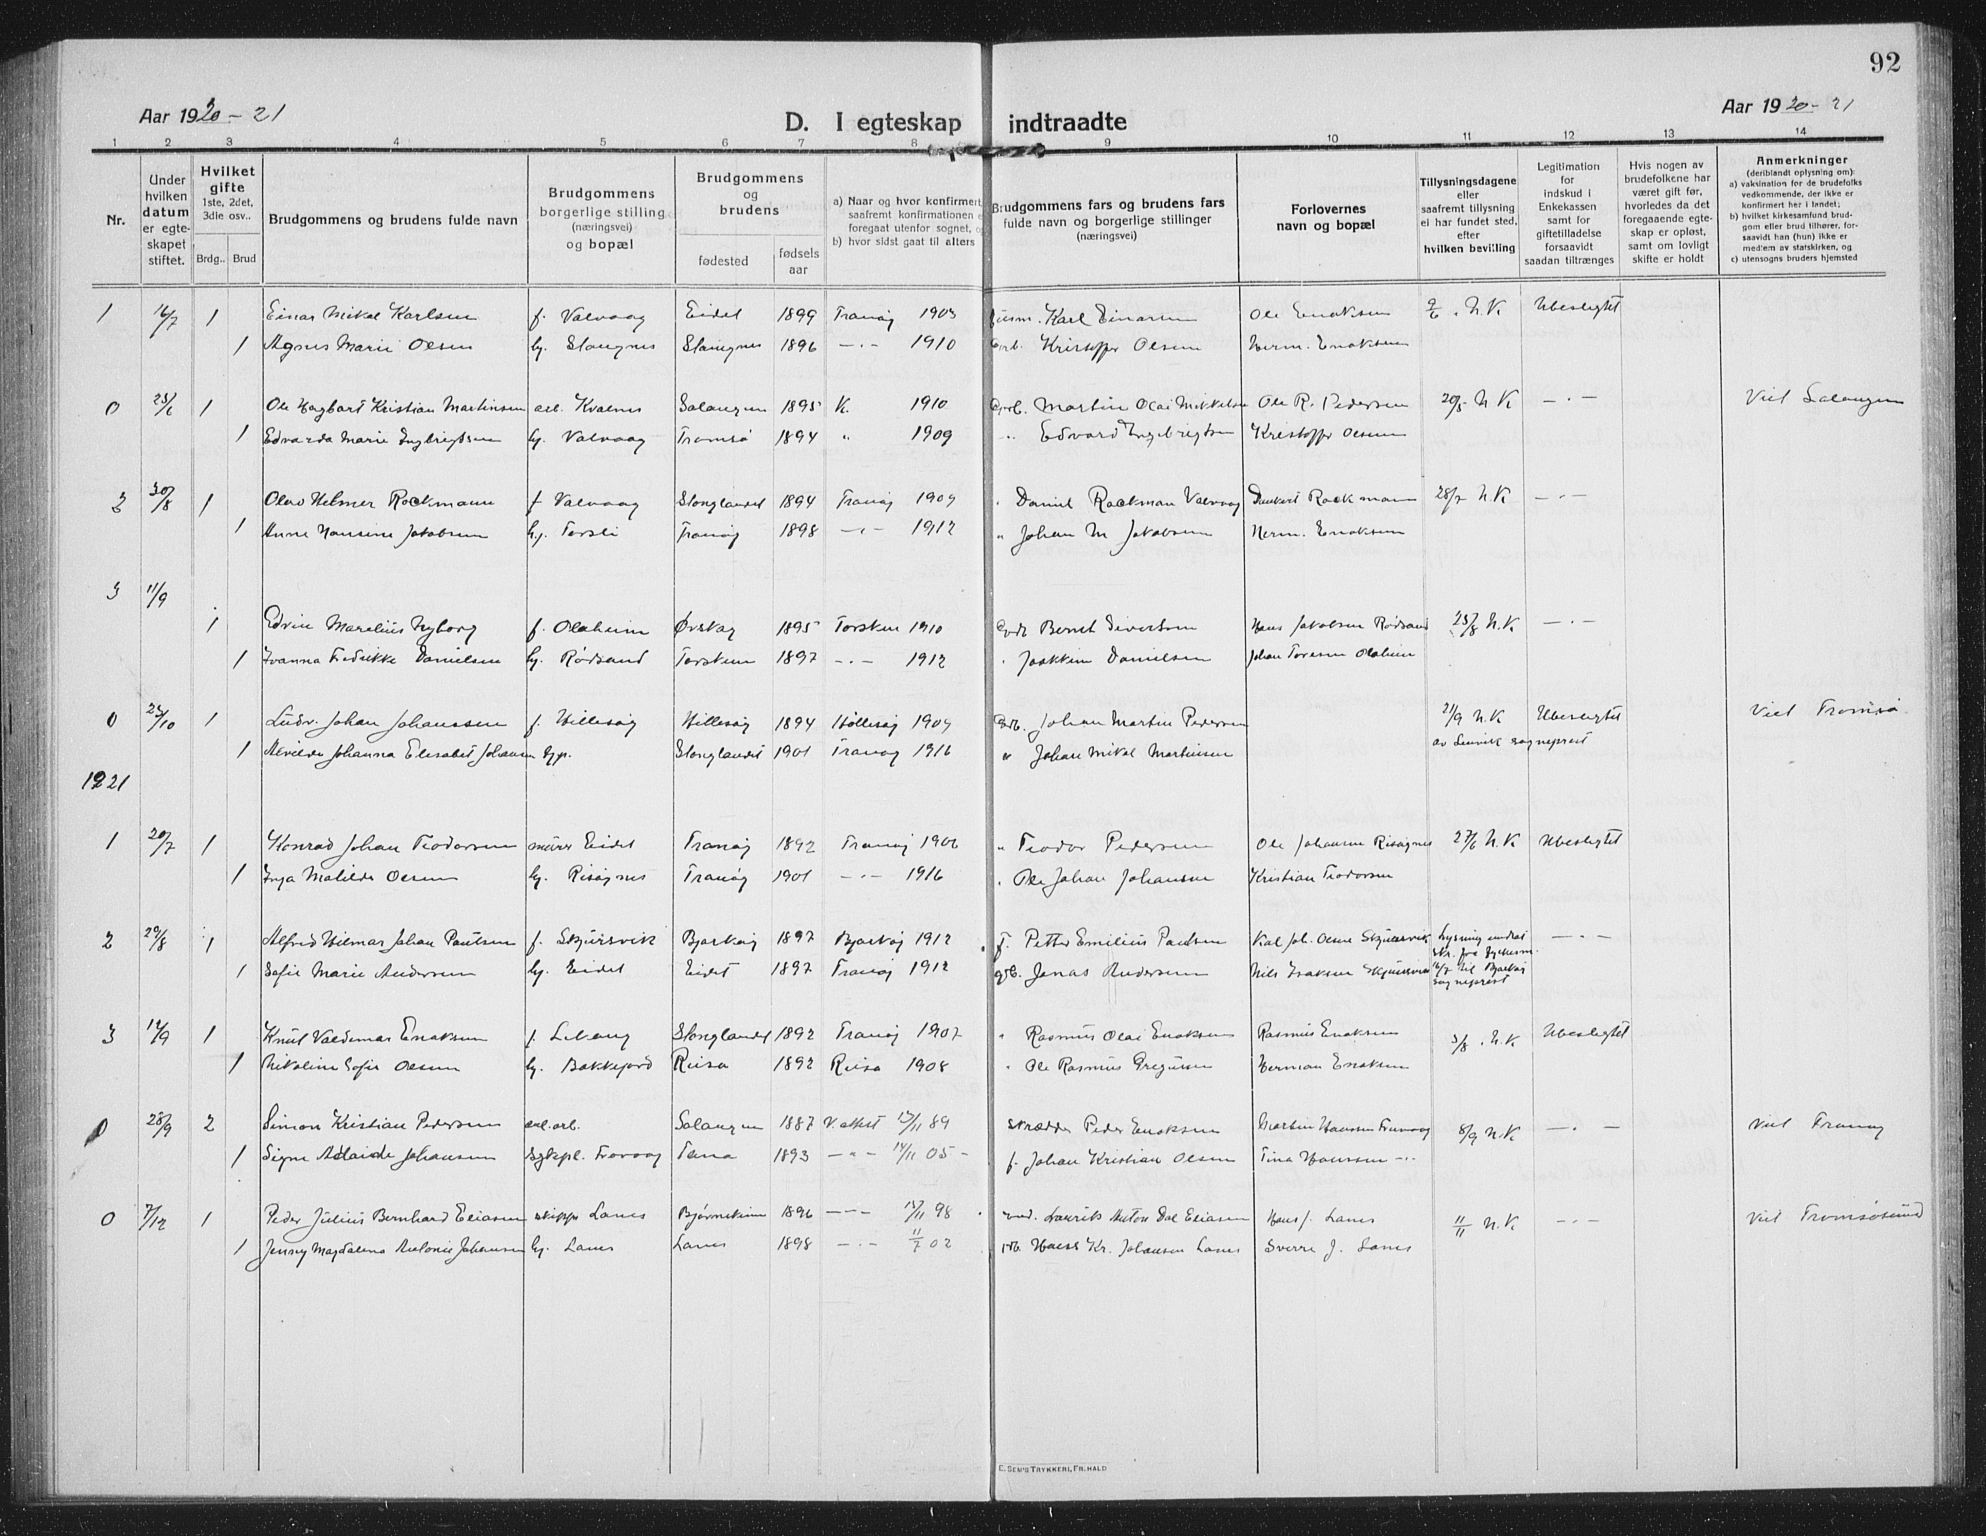 92
Aar 1920-21
D. I egteskap indtraadte
Aar 1920-21
1 2 3 4 5 6 7 8 9 10 11 12 13 14
Nr.
Under hvilken datum er egteskapet stiftet.
Hvilket gifte 1ste, 2det, 3die osv..
Brdg.. Brud
Brudgommens og brudens fulde navn
Brudgommens borgerlige stilling (næringsvei) og bopæl
Brudgommens og brudens
fødested
fødsels aar
a) Naar og hvor konfirmert, saafremt konfirmationen e foregaat utenfor sognet, o
b) hvor sidst gaat til alters
Brudgommens fars og brudens fars fulde navn og borgerlige stillinger (næringsvei)
Forlovernes navn og bopæl
Tillysningsdagene eller saafremt tillysning ei har fundet sted, efter hvilken bevilling
Legitimation for indskud i Enkekassen samt for giftetilladelse forsaavidt saadan tiltrænges
Hvis nogen av brudefolkene har været gift før, hvorledes da det foregaaende egteskap er opløst, samt om lovligt skifte er holdt
Anmerkninger (deriblandt oplysning om):
a) vaksination for de brudefolks vedkommende, der ikke er konfirmert her i landet;
b) hvilket kirkesamfund brudgom eller brud tilhører, forsaavidt han (hun) ikke er medlem av statskirken, og
c) utensogns bruders hjemsted
1 16/7 1 Einar Mikal Karlsen f. Valvaag Eidet 1899 Tranøy 1903 fiskm. Karl Einarsen Ole Enoksen 9/6 . N.K Ubeslegtet
1 Agnes Marie Olsen hj. Stangnes Stangnes 1896 -"- 1910 Grb. Kristoffer Olsen Herm. Enoksen
0 1 Ole Hagbart Kristian Martinsen arb. Kvalnes Salangen 1895 K. 1910 Grb. Martin Olai Mikkelsen Ole R. Pedersen 20/5 N K -"- Viet Salangen
1 Edvarda Marie Ingbrigtsen hj. Valvaag Tromsø 1894 " 1909 " Edvard Ingebrigtsen Kristoffer Olsen
2 30/8 1 Olav Helmer Rockmann f Valvaag Stonglandet 1894 Tranøy 1909 " Daniel Rockman Valvaag Dankert Rockmann 28/7 N.K -"-
1 Anne Hansine Jakobsen hj. Torsli Tranøy 1898 -"- 1912 " Johan M Jakobsen Herm. Enoksen
3 11/9
1 Edvin Marelius Nyborg f. Olaheim Ørskog 1895 Torsken 1910 Grb Bernt Sivertsen Hans Jakobsen Rødsand 23/8 N.K -"-
1 Ivanna Fredrikke Danielsen hj. Rødsand Torsken 1897 -"- 1912 " Joakkim Danielsen Johan Toresen Olaheim
0 23/10 1 Ludv. Johan Johanssen f. Hillesøy Hillesøy 1894 Hillesøy 1909 Grb. Johan Martin Pedersen 21/9 N.K Ubeslegtet Viet Tromsø
1 Alvilde Johanna Elisabet Johansen Stonglandet 1901 Tranøy 1916 " Johan Mikal Martinsen av Lenvik sogneprest
1921
1 20/7 1 Konrad Johan Teodorsen murer Eidet Tranøy 1892 Tranøy 1906 " Teodor Pedersen Ole Johansen Risøgnes 27/6 N.K Ubeslegtet
1 Inga Matilde Olsen hj. Risøgnes Tranøy 1901 -"- 1916 " Ole Johan Johansen Kristian Teodorsen
2 29/8 1 Alfred Hilmar Johan Paulsen f. Skjursvik Bjarkøy 1897 Bjarkøy 1912 f. Petter Emilius Paulsen Kal Joh. Olsen Skjursvik -"-
1 Sofie Marie Andersen hj. Eidet Eidet 1897 Tranøy 1912 grb. Jonas Andersen Nils Isaksen Skjursvik til Bjarkøy sogneprest
3 1 Knut Valdemar Enoksen f. Lekang Stonglandet 1892 Tranøy 1907 " Rasmus Olai Enoksen Rasmus Enoksen 3/8 . N.K Ubeslegtet
1 Nikoline Sofie Olsen hj. Bakkejord Reisa 1892 Reisa 1908 " Ole Rasmus Gregusen Herman Enoksen
0 28/9 2 Simon Kristian Pedersen Salangen 1887 V. attest 89 skrædder Peder Enoksen Martin Hanssen Fravaag 8/9 N.K -"- Viet Tranøy
1 Signe Adlaide Johansen Fravaag Tana 1893 -"- 05 f. Johan Kristian Olsen Tina Hanssen -"-
0 7/12 1 Peder Julius Bernhard Eliasen skipper Lanes Bjørnskinn 1896 -"- 98 Laurits Anton Dal Eliasen Hans J. Lanes 11/11 N.K -"- Viet Tromsøsund
1 Jenny Magdalena Antonie Johansen hj. Lanes Lanes 1898 -"- 11/7 02 Hans Kr. Johansen Lanes Sverre J. Lanes
E. SEM'S TRYKKERI, FR.HALD